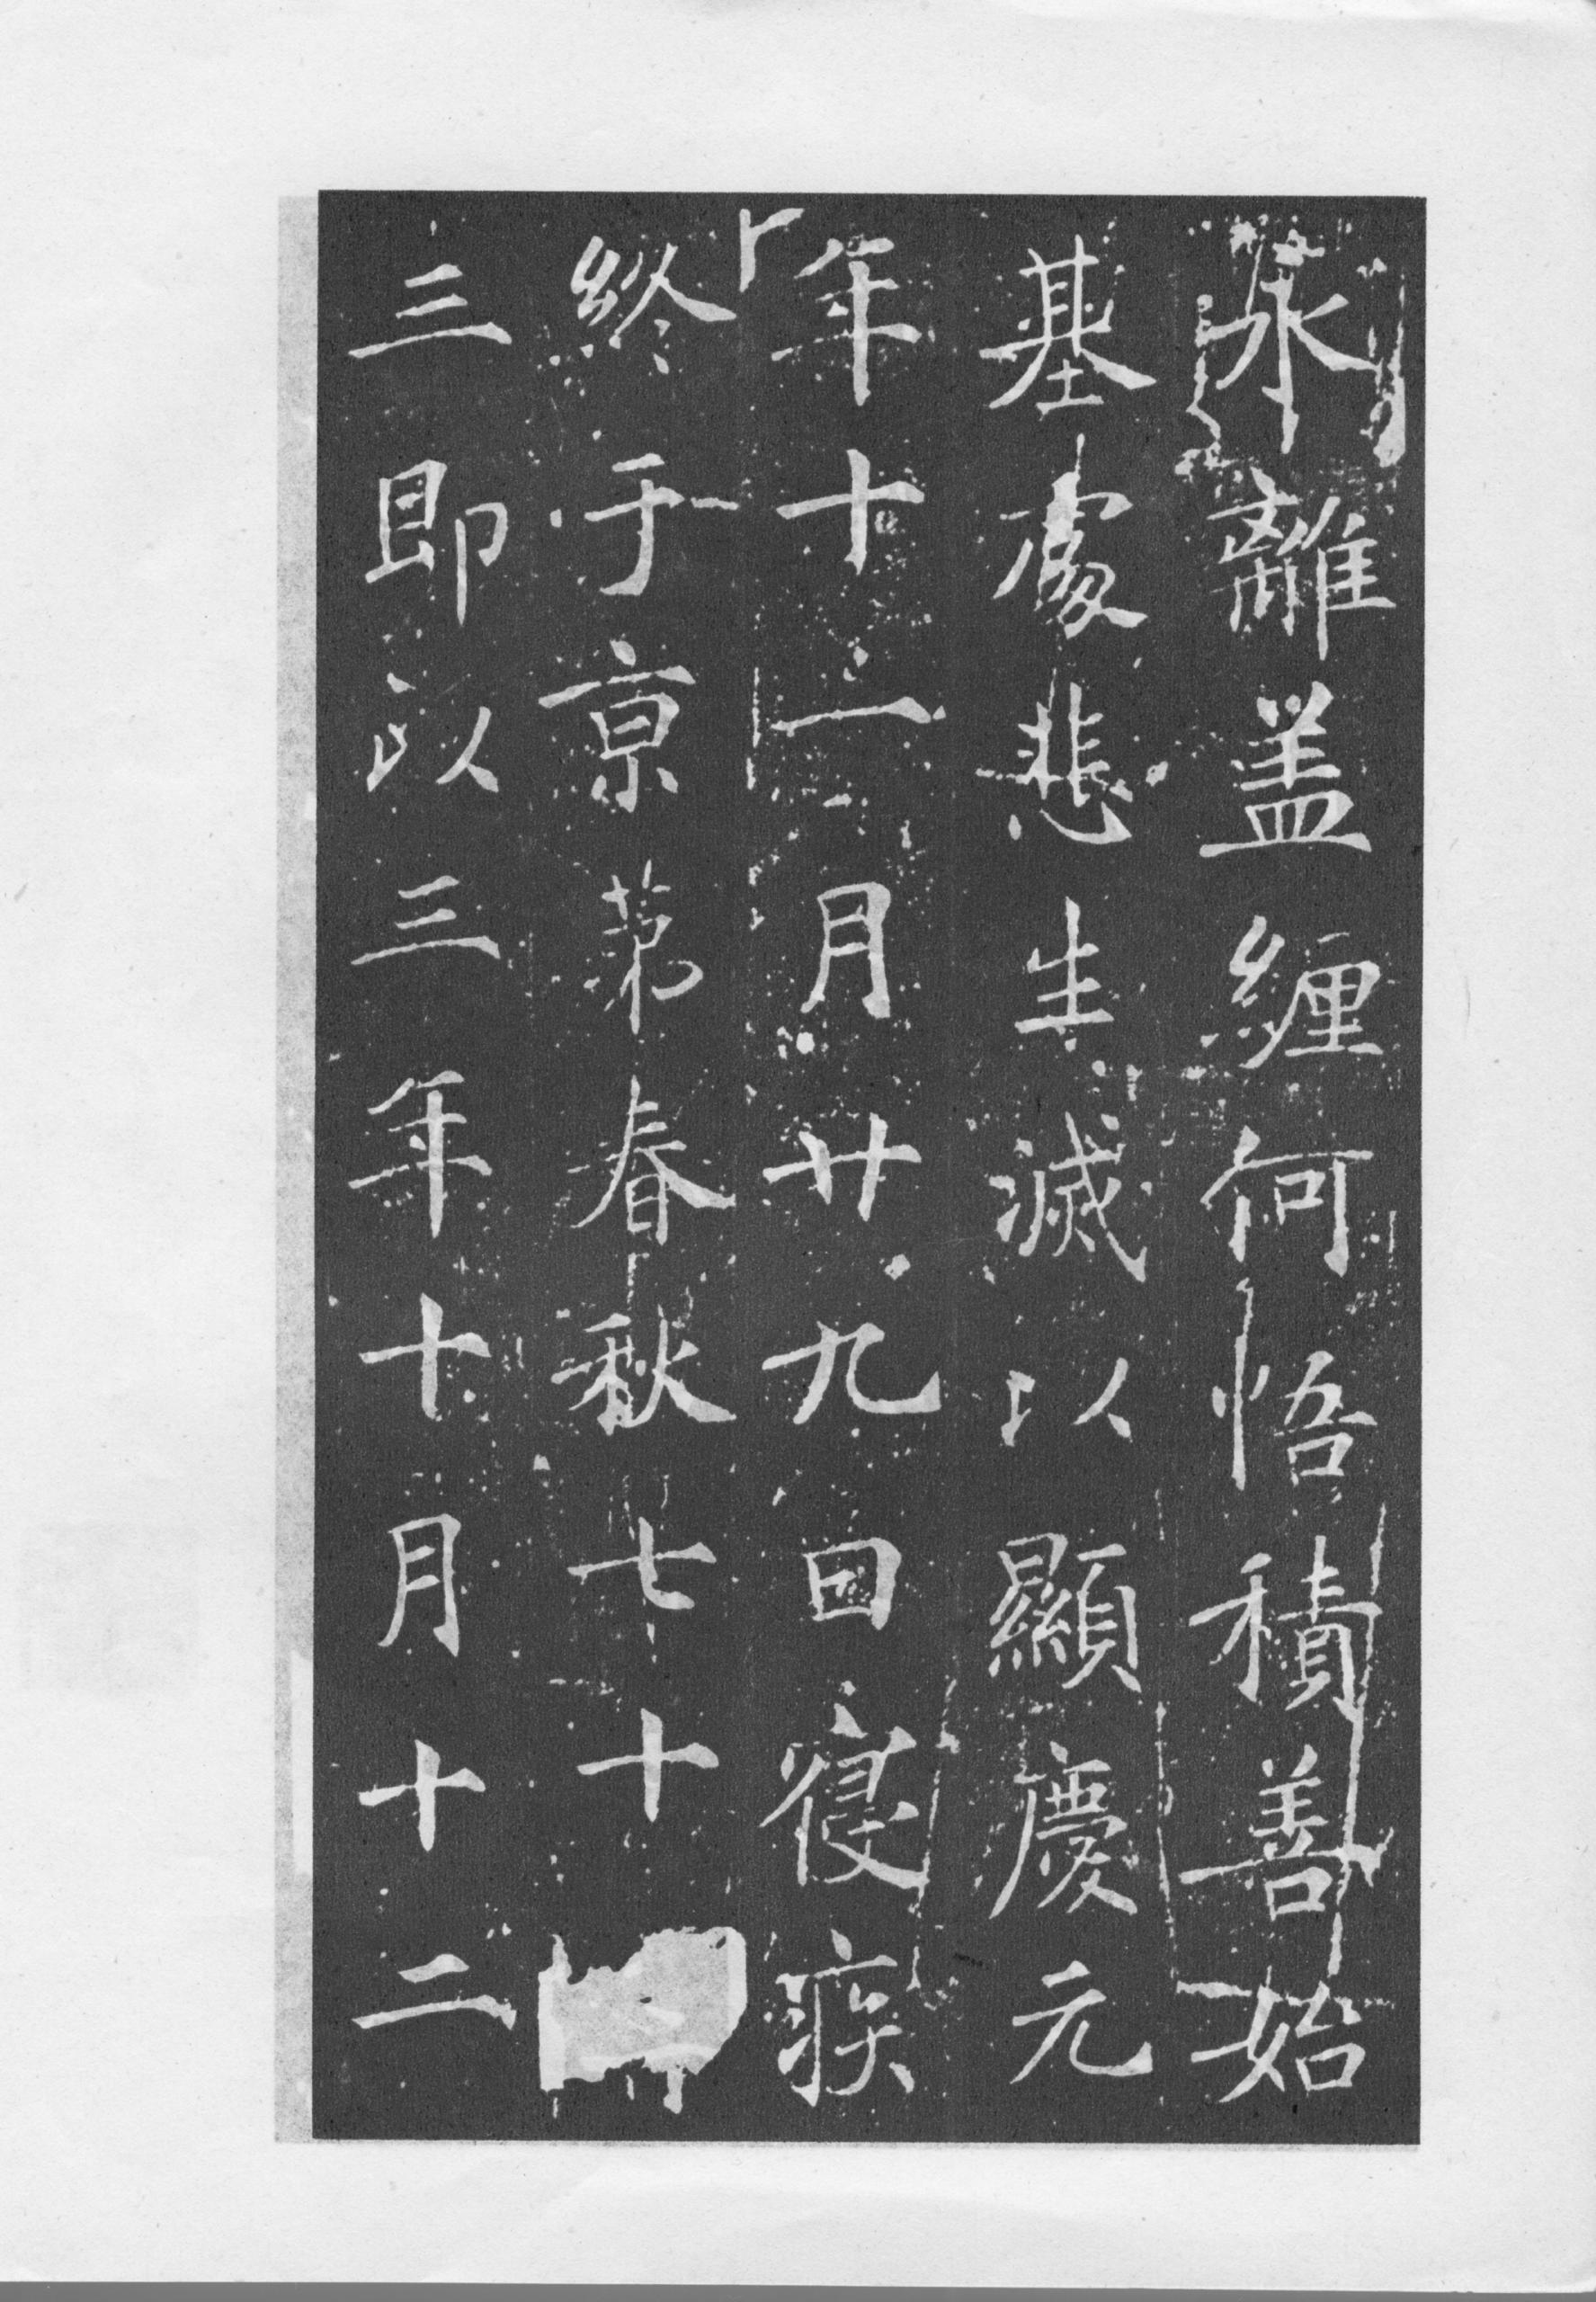 永離盖纏何悟積善始
基處悲生滅以顯慶元
年十一月廿九日寝疾
終于京苐春秋七十
三即以三年十月十二